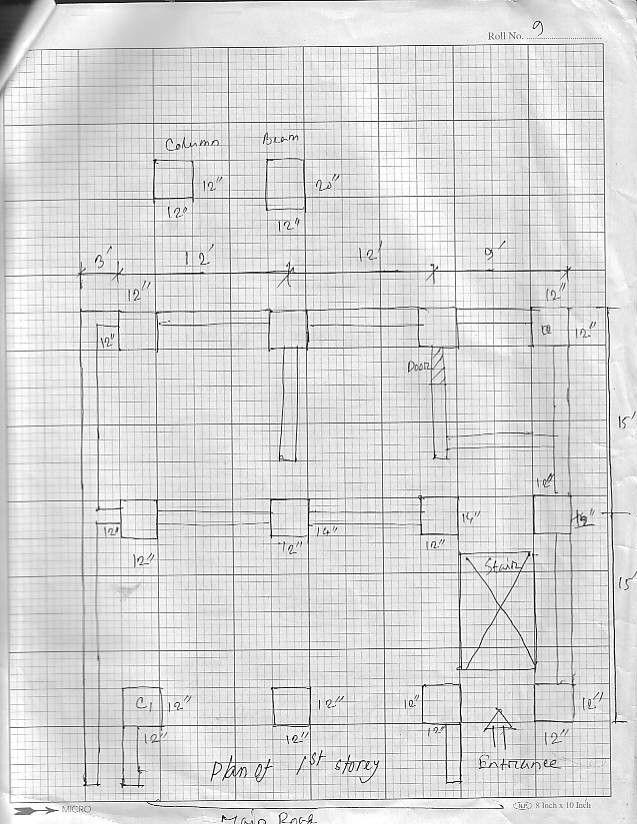 Roll No. 9
Column Beam
12" 20"
12" 12"
3' 12' 12' 9'
12" 12"
12" 12"
Door
15'
12"
12" 12" 14" 12" 14"
12"
Stair
15'
C1 12" 12" 12" 12"
12" 12" 12" 12"
Plan of 1st storey Entrance
MICRO 8 Inch x 10 Inch
Main Road